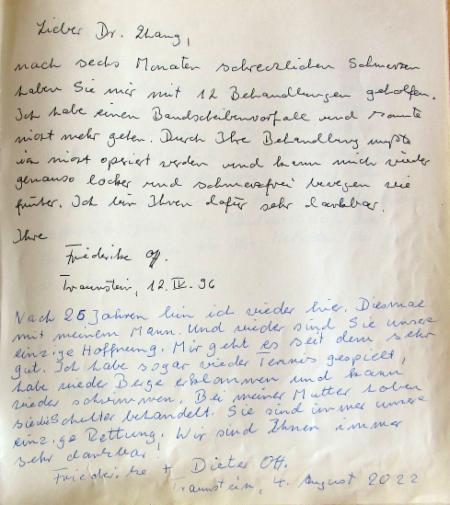 Lieber Dr. Zhang,
nach sechs Monaten schrecklichen Schmerzen
haben Sie mir mit 12 Behandlungen geholfen.
Ich habe einen Bandscheibenvorfall und konnte
nicht mehr gehen. Durch Ihre Behandlung mußte
ich nicht operiert werden und kann mich wieder
genauso locker und schmerzfrei bewegen wie
früher. Ich bin Ihnen dafür sehr dankbar.
Ihre
Friederike
Traunstein, 12. IV. 96
Nach 26 Jahren bin ich wieder hier. Diesmal
mit meinem Mann. Und wieder sind Sie unsere
einzige Hoffnung. Mir geht es seit dem sehr
gut. Ich habe sogar wieder Tennis gespielt,
habe wieder Berge erklommen und kann
wieder schwimmen. Bei meiner Mutter haben
sie die Schulter behandelt. Sie sind immer unsere
einzige Rettung. Wir sind Ihnen immer
sehr dankbar!
Friederike + Dieter Ott.
Traunstein, 4. August 2022